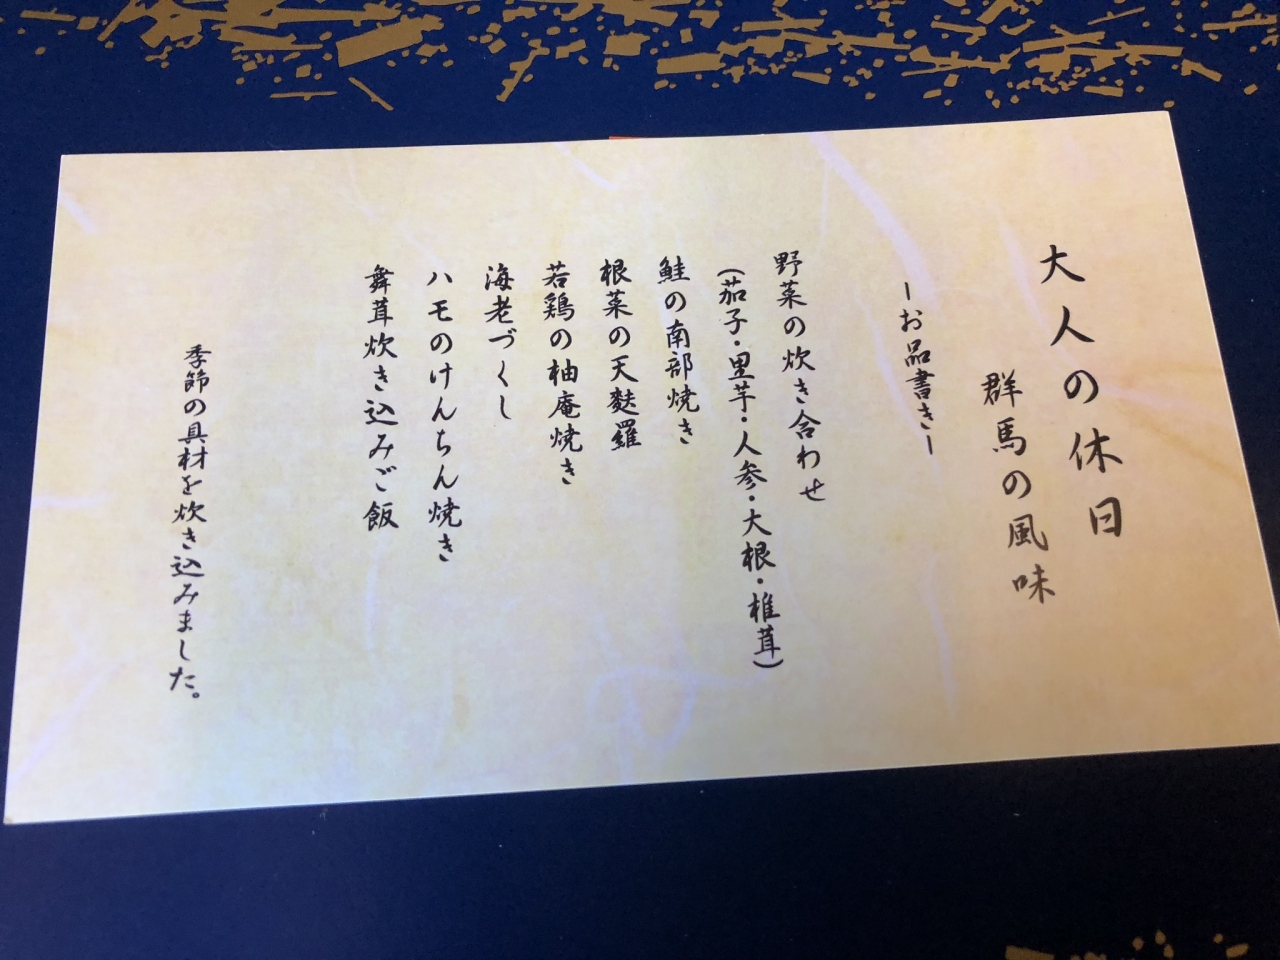 大人の休日
群馬の風味
ーお品書きー
野菜の炊き合わせ
(茄子・里芋・人参・大根・椎茸)
鮭の南部焼き
根菜の天麩羅
若鶏の柚庵焼き
海老づくし
ハモのけんちん焼き
舞茸炊き込みご飯
季節の具材を炊き込みました。